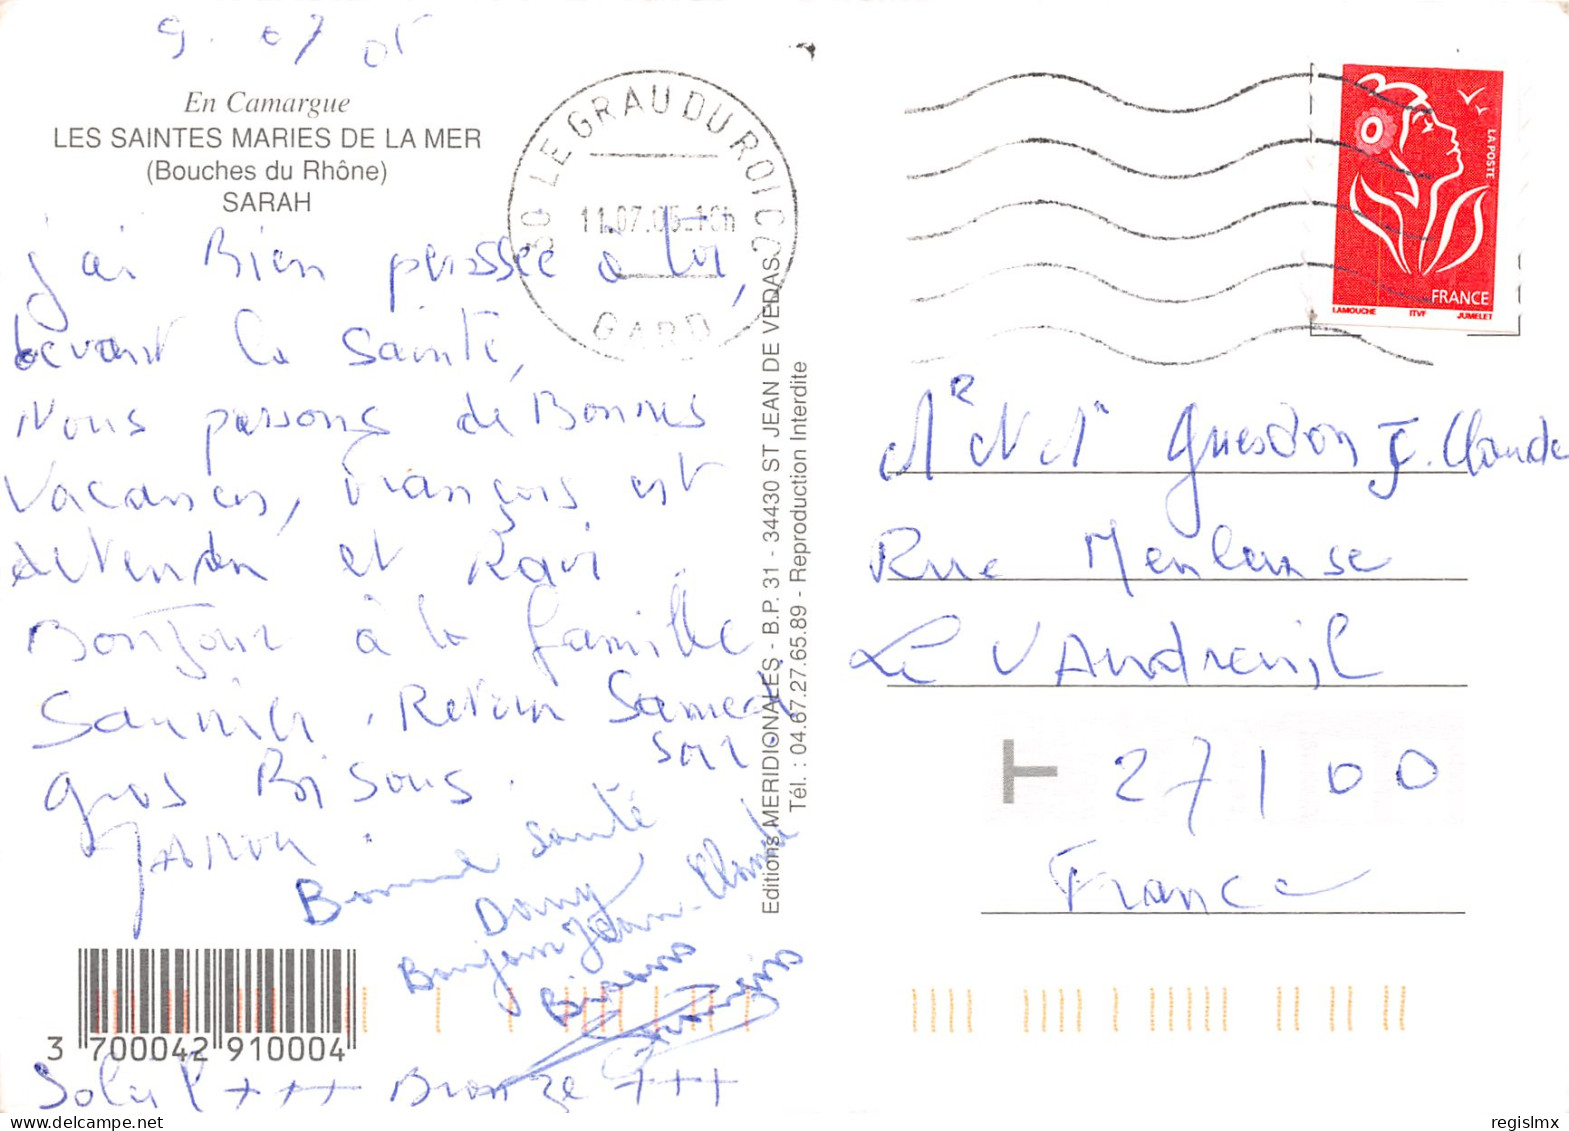 9. 07 05
En Camargue
LES SAINTES MARIES DE LA MER
(Bouches du Rhône)
SARAH
j'ai Bien penssée à toi,
devant la Sainte,
Nous passons de Bonnes
Vacances, François est
detendu et Ravi.
Bonjour à la famille
Saunier. Retour Samedi
soir.
gros Bisous.
Bonne santé
Dany
Bonjour Jean-Claude
Bisous
François
Soleil +++ Bronze +++
3 700042 910004
30 LE GRAU DU ROI CC
11.07.05-18h
GARD
Editions MERIDIONALES - B.P. 31 - 34430 ST JEAN DE VEDAS
Tél. : 04.67.27.65.89 - Reproduction Interdite
LA POSTE
FRANCE
LAMOUCHE ITVF JUMELET
Guesdon J. Claude
Rue
Le VAudreuil
27100
France
regislmx